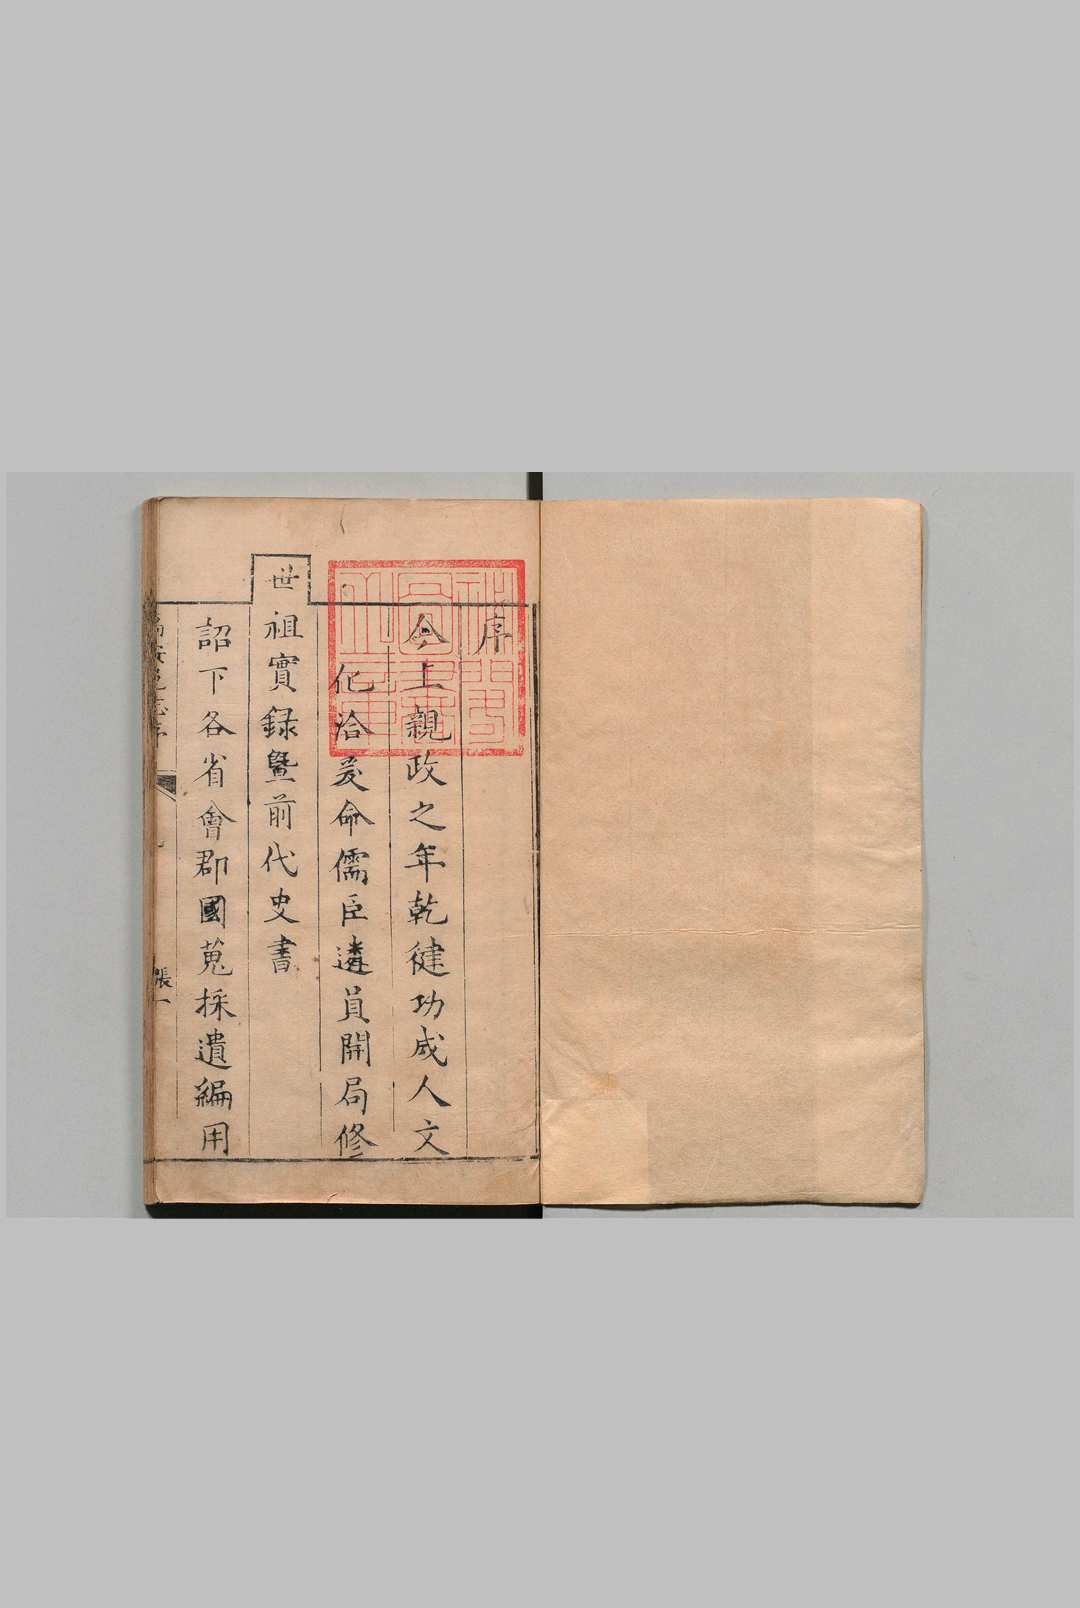 序
今上親政之年乾健功成人文
化洽爰命儒臣遴員開局修
世祖實録曁前代史書
詔下各省會郡國蒐採遺編用
安邑志序
張一